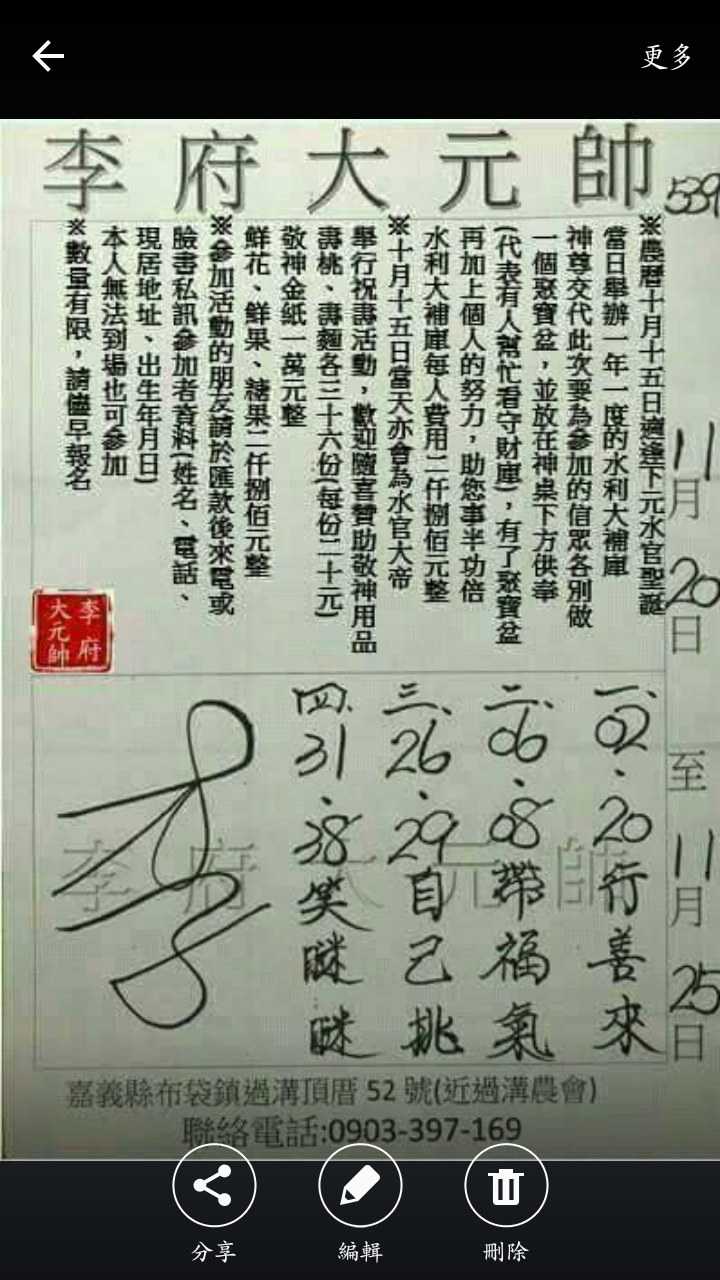 更多
李府大元帥
539
※農曆十月十五日適逢下元水官聖誕
當日舉辦一年一度的水利大補庫
神尊交代此次要為參加的信眾各別做
一個聚寶盆，並放在神桌下方供奉
(代表有人幫忙看守財庫)，有了聚寶盆
再加上個人的努力，助您事半功倍
水利大補庫每人費用二仟捌佰元整
※十月十五日當天亦會為水官大帝
舉行祝壽活動，歡迎隨喜贊助敬神用品
壽桃、壽麵各三十六份(每份二十元)
敬神金紙一萬元整
鮮花、鮮果、糖果二仟捌佰元整
※參加活動的朋友請於匯款後來電或
臉書私訊參加者資料(姓名、電話、
現居地址、出生年月日)
本人無法到場也可參加
※數量有限，請儘早報名
李府
大元帥
11月20日至11月25日
一、02.20行善來
二、06.08帶福氣
三、26.29自己挑
四、31.38笑瞇瞇
李府大元帥
嘉義縣布袋鎮過溝頂厝 52 號(近過溝農會)
聯絡電話:0903-397-169
分享
編輯
刪除